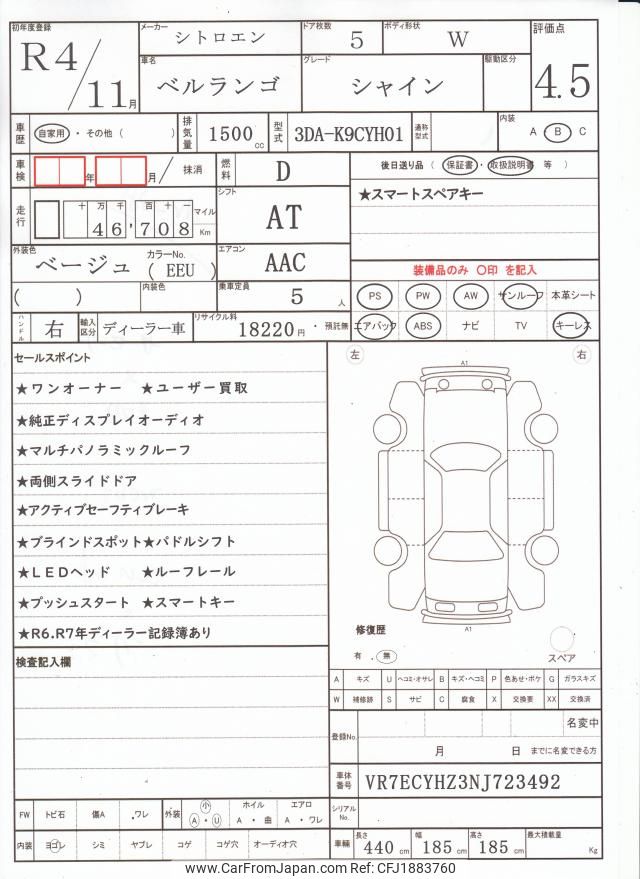 初年度登録 R4/11月
メーカー シトロエン ドア枚数 5 ボディ形状 W 評価点 4.5
車名 ベルランゴ グレード シャイン 駆動区分
車歴 自家用・その他( ) 排気量 1500cc 型式 3DA-K9CYH01 通称型式 内装 A B C
車検 年 月/ 抹消 燃料 D 後日送り品( 保証書・取扱説明書 等 )
走行 十万千百十一 46,708 マイル Km シフト AT ★スマートスペアキー
外装色 ベージュ カラーNo. ( EEU ) エアコン AAC 装備品のみ 〇印 を記入
( ) 内装色 乗車定員 5人 PS PW AW サンルーフ 本革シート
ハンドル 右 輸入区分 ディーラー車 リサイクル料 18220円・預託無 エアバック ABS ナビ TV キーレス
セールスポイント
★ワンオーナー ★ユーザー買取
★純正ディスプレイオーディオ
★マルチパノラミックルーフ
★両側スライドドア
★アクティブセーフティブレーキ
★ブラインドスポット★パドルシフト
★LEDヘッド ★ルーフレール
★プッシュスタート ★スマートキー
★R6.R7年ディーラー記録簿あり
左 A1 右
修復歴 A1
有 . 無 スペア
検査記入欄
A キズ U ヘコミ・オサレ B キズ・ヘコミ P 色あせ・ボケ G ガラスキズ
W 補修跡 S サビ C 腐食 X 交換要 XX 交換済
登録No. 名変中
月 日 までに名変できる方
車体番号 VR7ECYHZ3NJ723492
FW トビ石 傷A .ワレ 外装 小 A・U ホイル A・曲 エアロ A・ワレ シリアルNo.
内装 ヨゴレ シミ ヤブレ コゲ コゲ穴 オーディオ穴 車輛 長さ 440cm 幅 185cm 高さ 185cm 最大積載量 Kg
CarFromJapan.com Ref: CFJ1883760